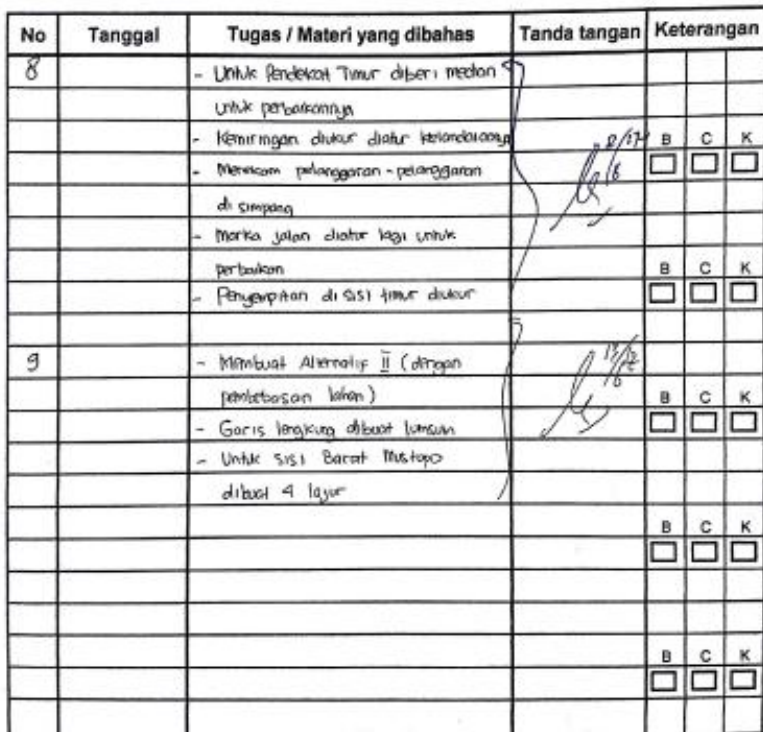 No Tanggal Tugas / Materi yang dibahas Tanda tangan Keterangan
8 - Untuk Pendekat Timur diberi median
untuk perbaikannya
- Kemiringan diukur diatur kelandaiannya
B C K
- Merekam pelanggaran - pelanggaran
di simpang
- Marka jalan diatur lagi untuk
perbaikan
B C K
- Penyempitan di sisi timur diukur
9 - Membuat Alternatif II (dengan
pembebasan lahan)
B C K
- Garis lengkung dibuat
- Untuk sisi Barat Mustopo
dibuat 4 lajur
B C K
B C K